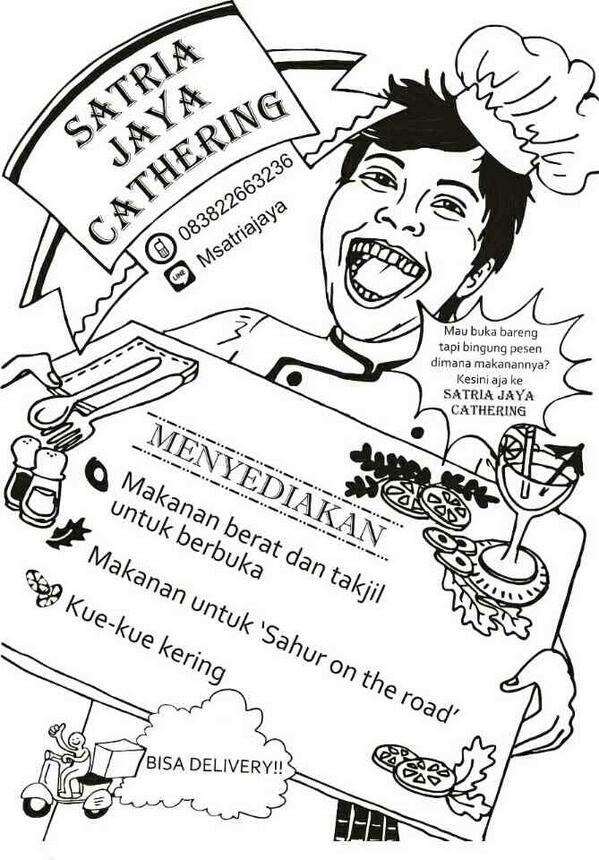 SATRIA
JAYA
CATHERING
083822663236
LINE
Msatriajaya
Mau buka bareng
tapi bingung pesen
dimana makanannya?
Kesini aja ke
SATRIA JAYA
CATHERING
MENYEDIAKAN
Makanan berat dan takjil
untuk berbuka
Makanan untuk 'Sahur on the road'
Kue-kue kering
BISA DELIVERY!!